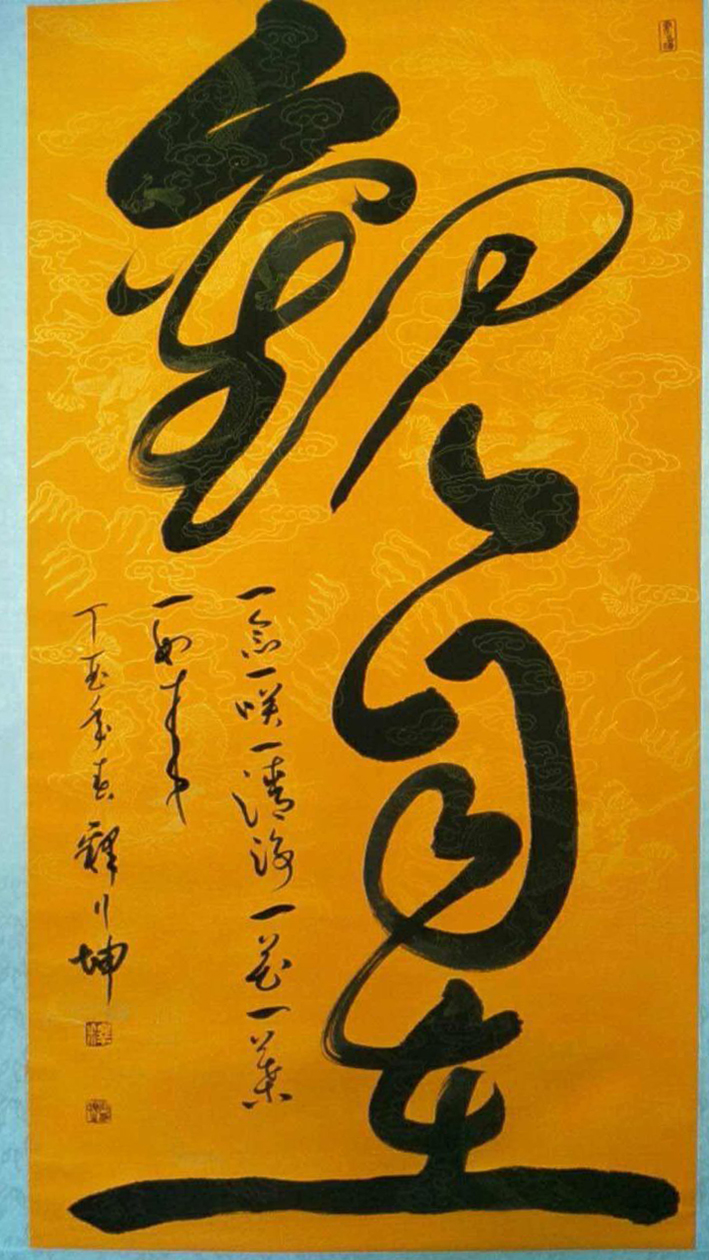 觀自在
一念一咲一清净一花一葉
一如来
丁酉年春 釋 坤